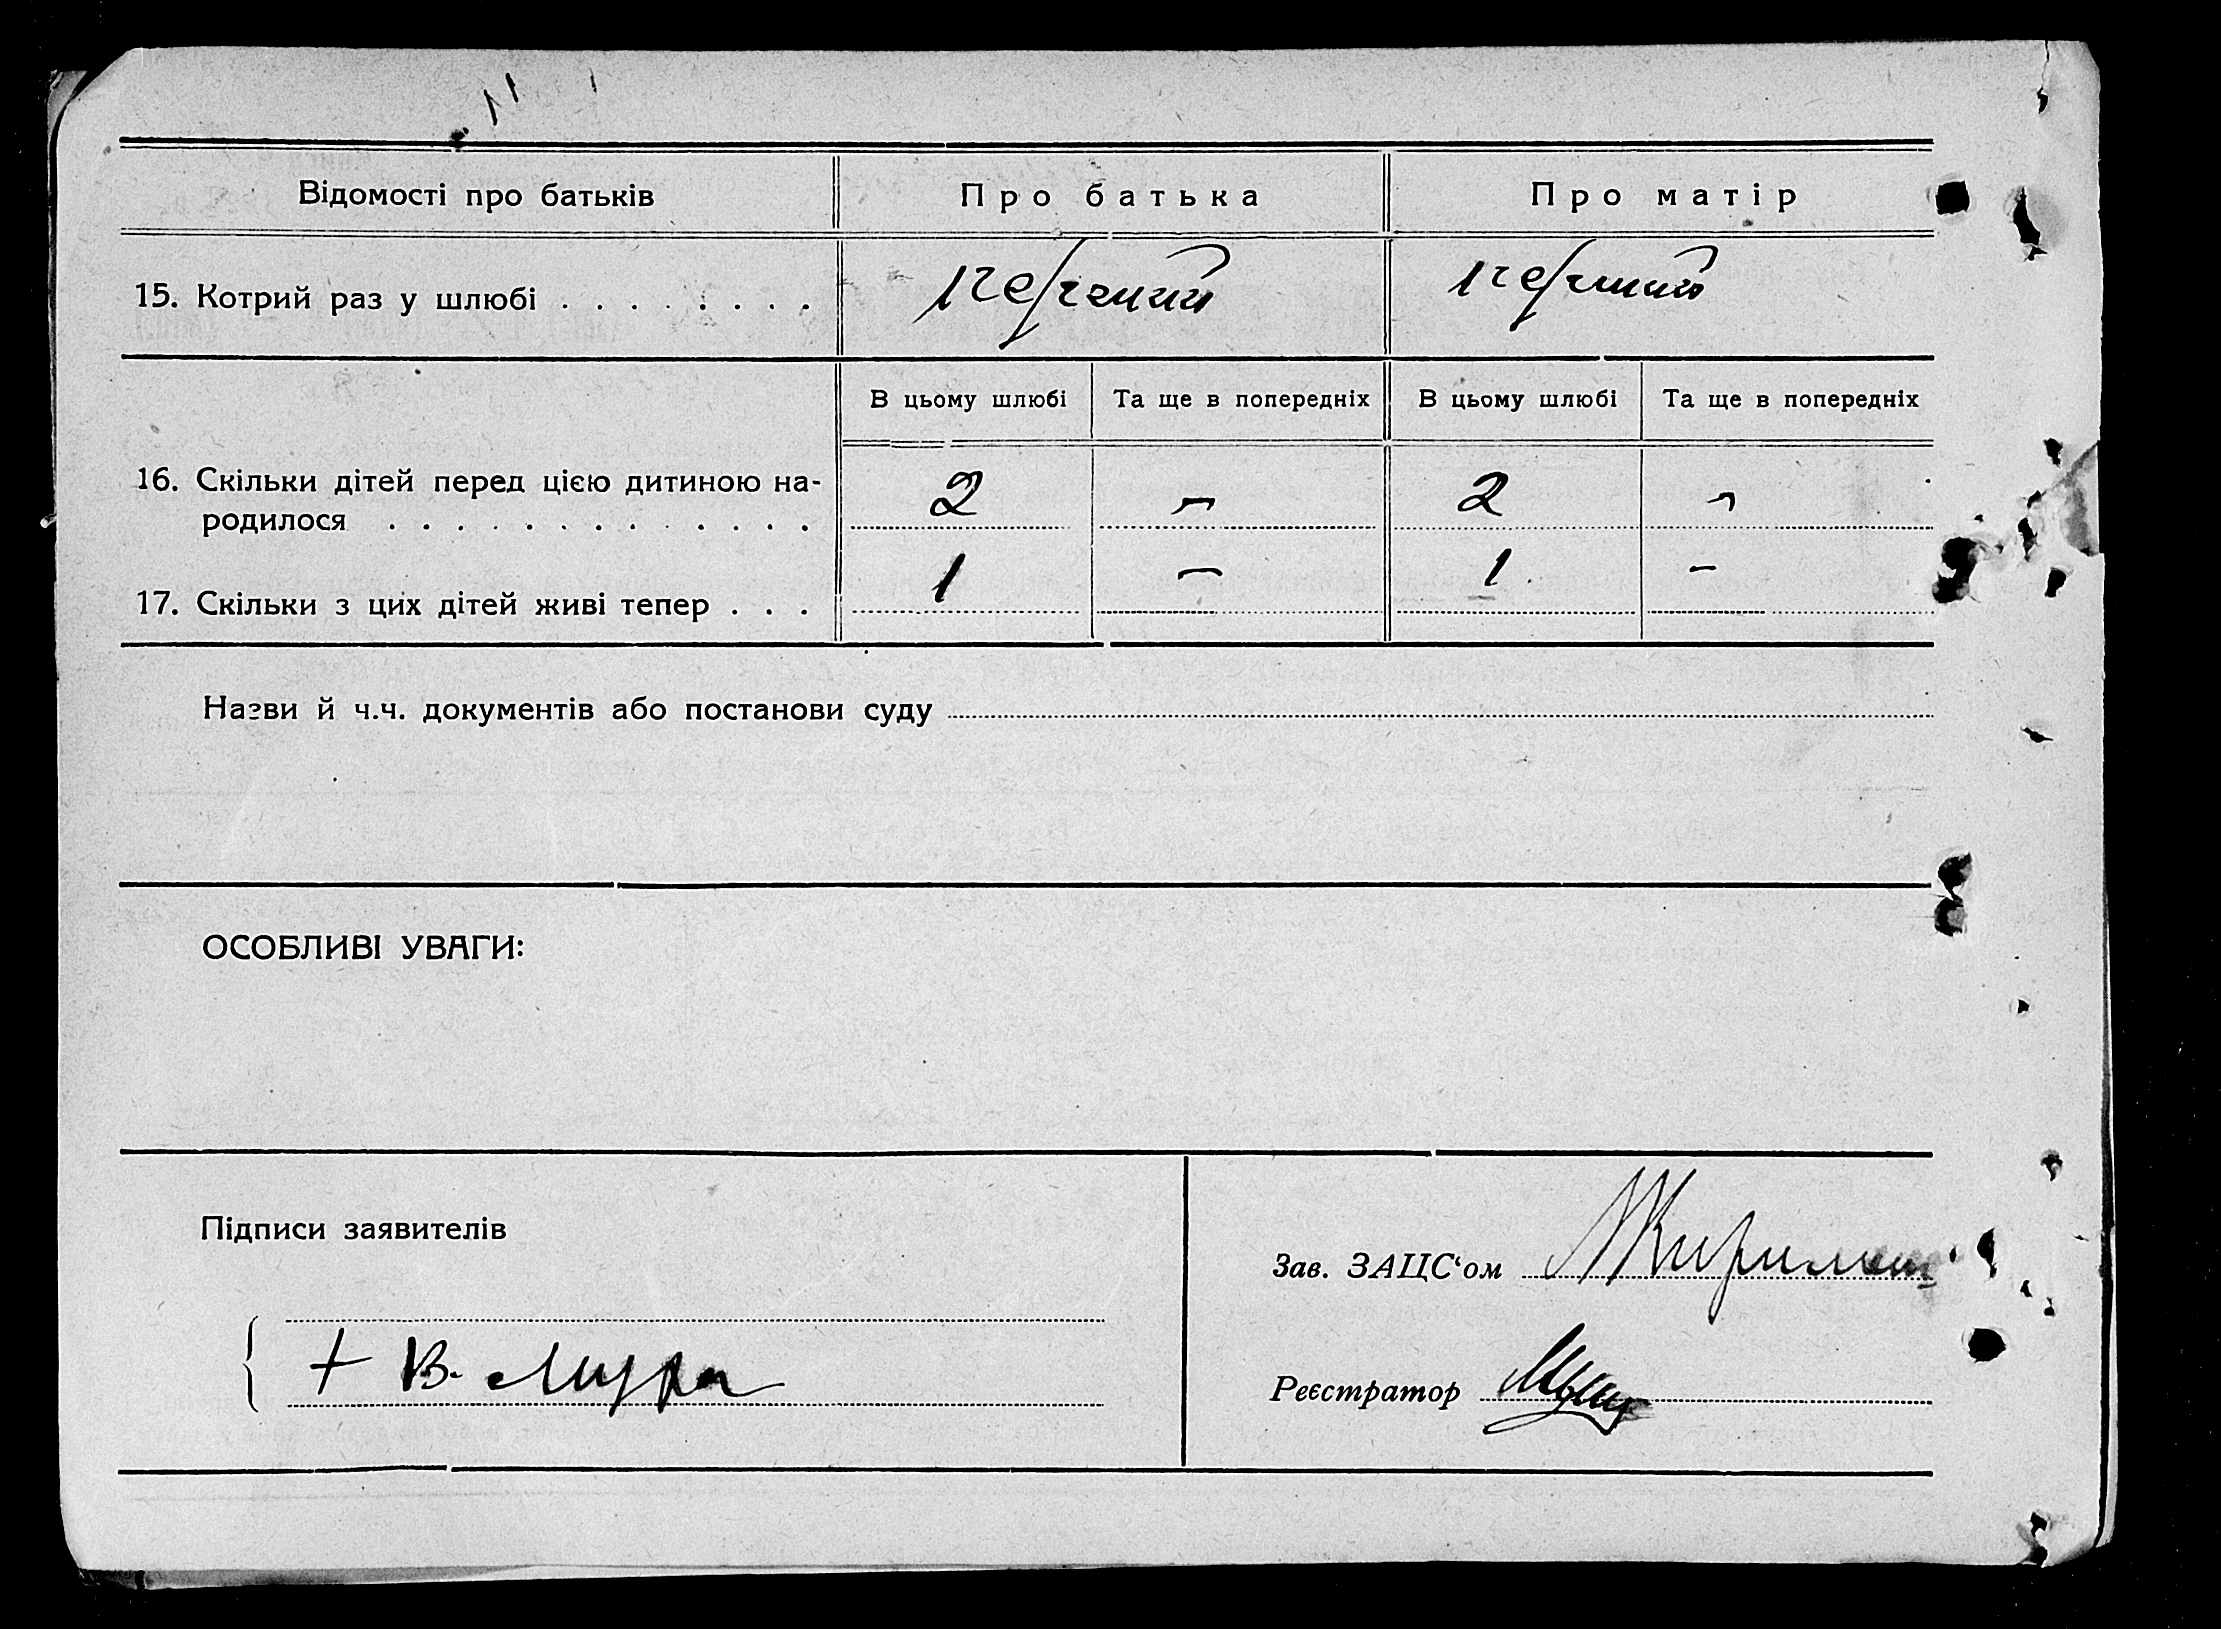 Відомості про батьків Про батька Про матір
15. Котрий раз у шлюбі . . . . . . . . перший перший
В цьому шлюбі Та ще в попередніх В цьому шлюбі Та ще в попередніх
16. Скільки дітей перед цією дитиною на-
родилося . . . . . . . . . . . . . 2 – 2 –
17. Скільки з цих дітей живі тепер . . . 1 – 1 –
Назви й ч.ч. документів або постанови суду
ОСОБЛИВІ УВАГИ:
Підписи заявителів
Зав. ЗАЦС‘ом
+ В.
Реєстратор